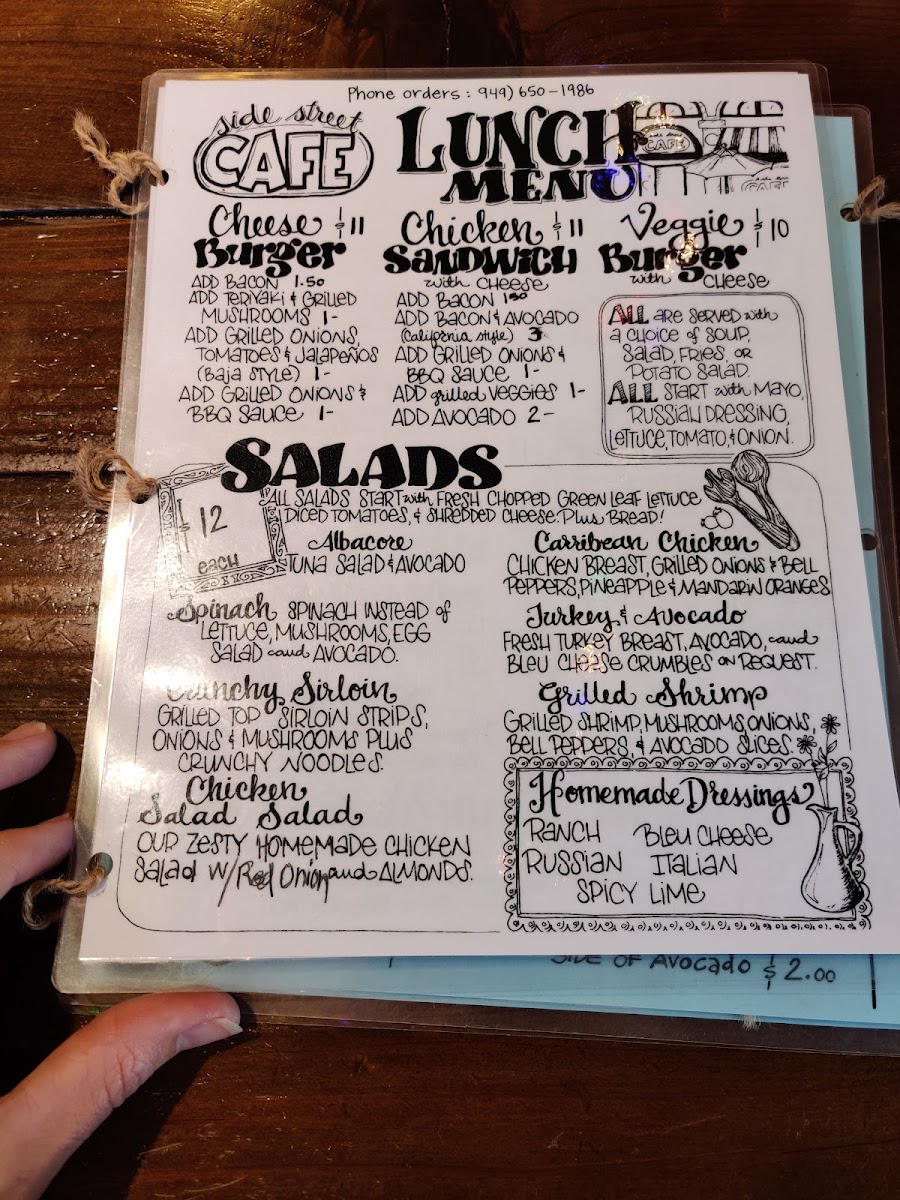 Phone orders: 949) 650-1986
side street
CAFE
LUNCH
MENU
CAFE
CAFE
Cheese $11
Burger
ADD BACON 1.50
ADD TERIYAKI & GRILLED
MUSHROOMS 1-
ADD GRILLED ONIONS,
TOMATOES & JALAPEÑOS
(BAJA STYLE) 1-
ADD GRILLED ONIONS &
BBQ SAUCE 1-
Chicken $11
SANDWICH
with CHEESE
ADD BACON 1.50
ADD BACON & AVOCADO
(California style) 3-
ADD GRILLED ONIONS &
BBQ SAUCE 1-
ADD grilled VEGGIES 1-
ADD AVOCADO 2-
Veggie $10
Burger
with CHEESE
ALL ARE SERVED with
a CHOICE of SOUP,
SALAD, FRIES, OR
POTATO SALAD.
ALL START with MAYO,
RUSSIAN DRESSING,
LETTUCE, TOMATO, & ONION.
SALADS
$12
each
ALL SALADS START with FRESH CHOPPED GREEN LEAF LETTUCE,
DICED TOMATOES, & SHREDDED CHEESE. Plus BREAD!
Albacore
TUNA SALAD & AVOCADO
Spinach SPINACH INSTEAD of
LETTUCE, MUSHROOMS, EGG
SALAD and AVOCADO.
Crunchy Sirloin
GRILLED TOP SIRLOIN STRIPS,
ONIONS & MUSHROOMS PLUS
CRUNCHY NOODLES.
Chicken
Salad Salad
OUR ZESTY HOMEMADE CHICKEN
Salad W/Red Onion and ALMONDS.
Carribean Chicken
CHICKEN BREAST, GRILLED ONIONS & BELL
PEPPERS, PINEAPPLE & MANDARIN ORANGES
Turkey & Avocado
FRESH TURKEY BREAST, AVOCADO, and
BLEU CHEESE CRUMBLES ON REQUEST.
Grilled Shrimp
GRILLED SHRIMP, MUSHROOMS, ONIONS,
BELL PEPPERS, & AVOCADO SLICES.
Homemade Dressings
RANCH BLEU CHEESE
RUSSIAN ITALIAN
SPICY LIME
SIDE OF AVOCADO $2.00